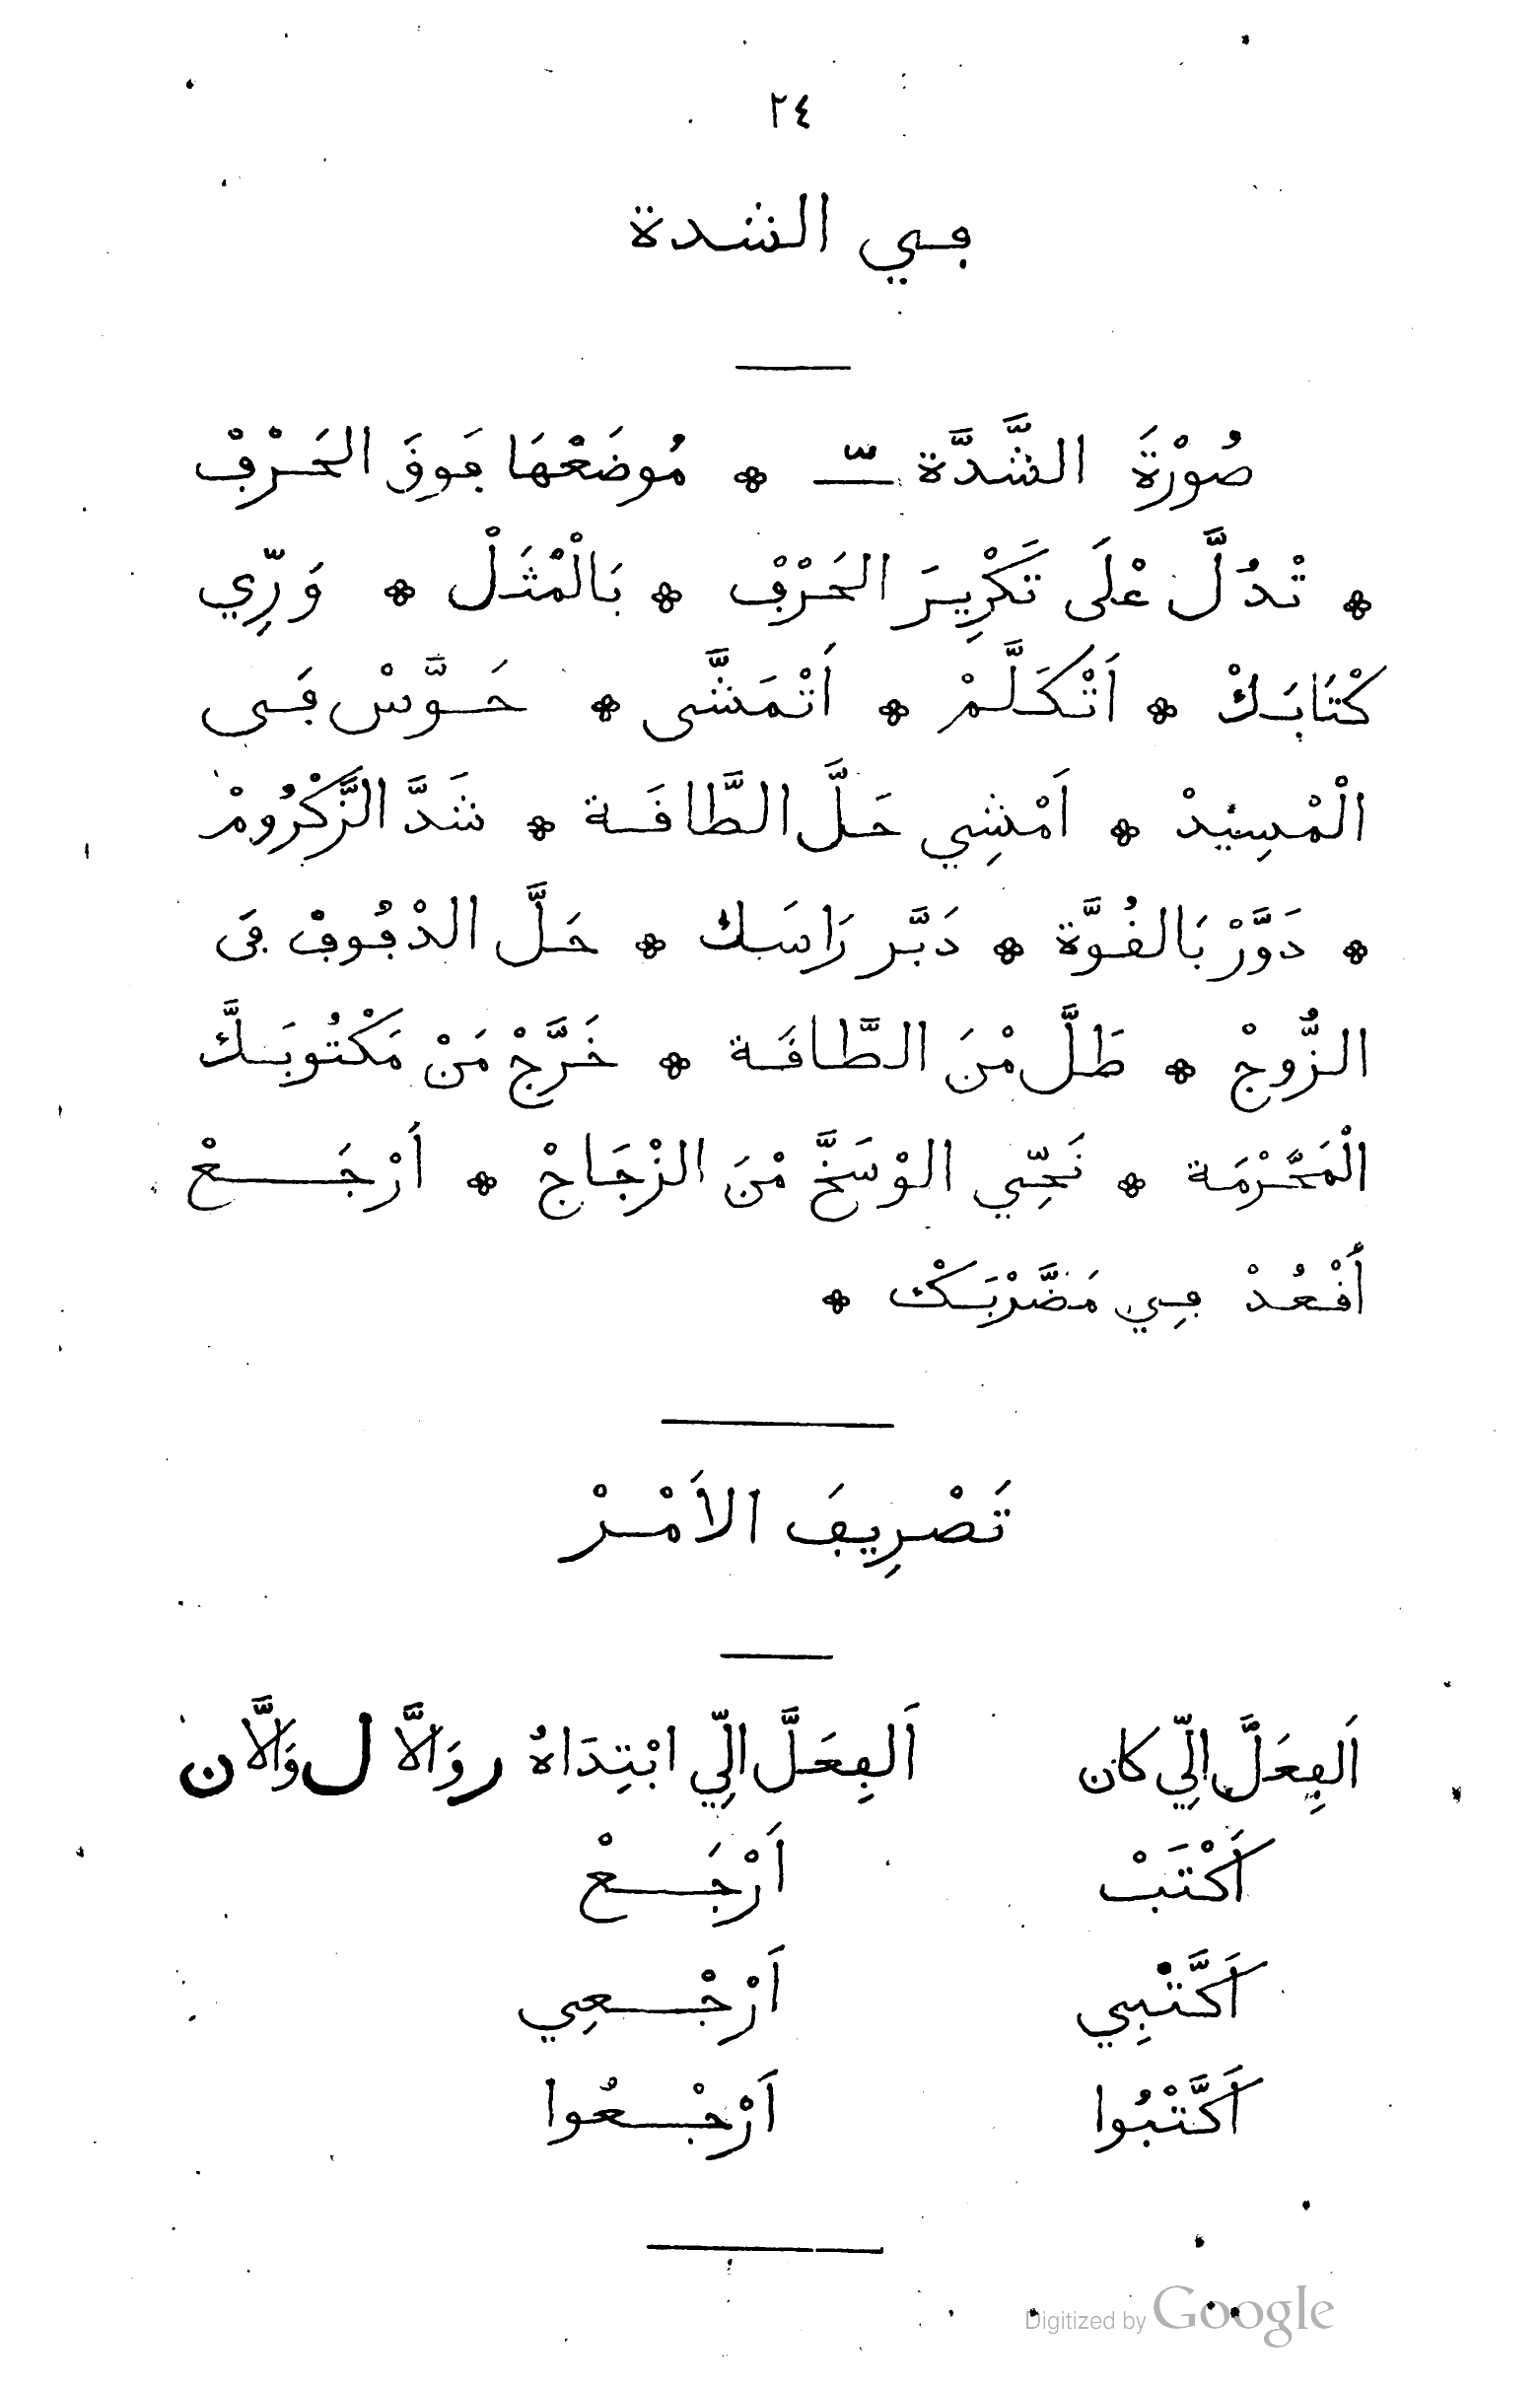 ٢٤
ڢي الشدة
صُوْرَة الشَّدَّة ـّ * مُوضَعْهَا ڢَوڧَ الحَـرْڢْ
* تْدُلَّ عْلَى تَكْرِيـرَ الحَـرْڢْ * بَالْمْثَـلْ * وَرِّي
كْتَابَـكْ * اَتْـكَـلَّـمْ * اَتْـمَـشَّـى * حَـوَّسْ ڢَـي
الْمْسِيْدْ * اَمْشِي حَـلَّ الطَّاڧَـة * شَدَّ الزَّكْرُومْ
* دَوَّرْ بَالڧُـوَّة * دَبَّـر رَاسَـك * حَـلَّ الدْڢُوڢْ ڢَى
الـزُّوجْ * طَـلَّ مْنَ الطَّـاڧَـة * خَـرَّجْ مَنْ مَكْتُوبَـكَّ
الْمَحَّـرْمَـة * نَحِّـي الوْسَخَّ مْنَ الزْجَـاجْ * أَرْجَـــعْ
أَڧْـعُـدْ ڢِـي مَضَّـرْبَـكْ *
تَصْرِيـڢَ الاَمْـرْ
اَلڢِعَـلَّ الِّي كان اَلڢِعَـلَّ الِّي ابْتِدَاهُ ر وَالاَّ ل وَالاَّ ن
اَكْتَبْ اَرْجَـــعْ
اَكَّتْبِي اَرْجْـــعِي
اَكَّتْبُوا اَرْجْـــعُوا
Digitized by Google